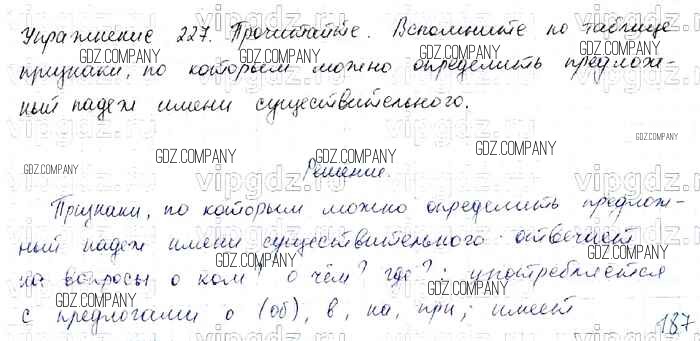 Упражнение 227. Прочитайте. Вспомните по таблице
признаки, по которым можно определить предлож-
ный падеж имени существительного.
Решение.
Признаки, по которым можно определить предлож-
ный падеж имени существительного: отвечает
на вопросы о ком? о чём? где?; употребляется
с предлогами о (об), в, на, при; имеет
187
GDZ.COMPANY
vipgdz.ru